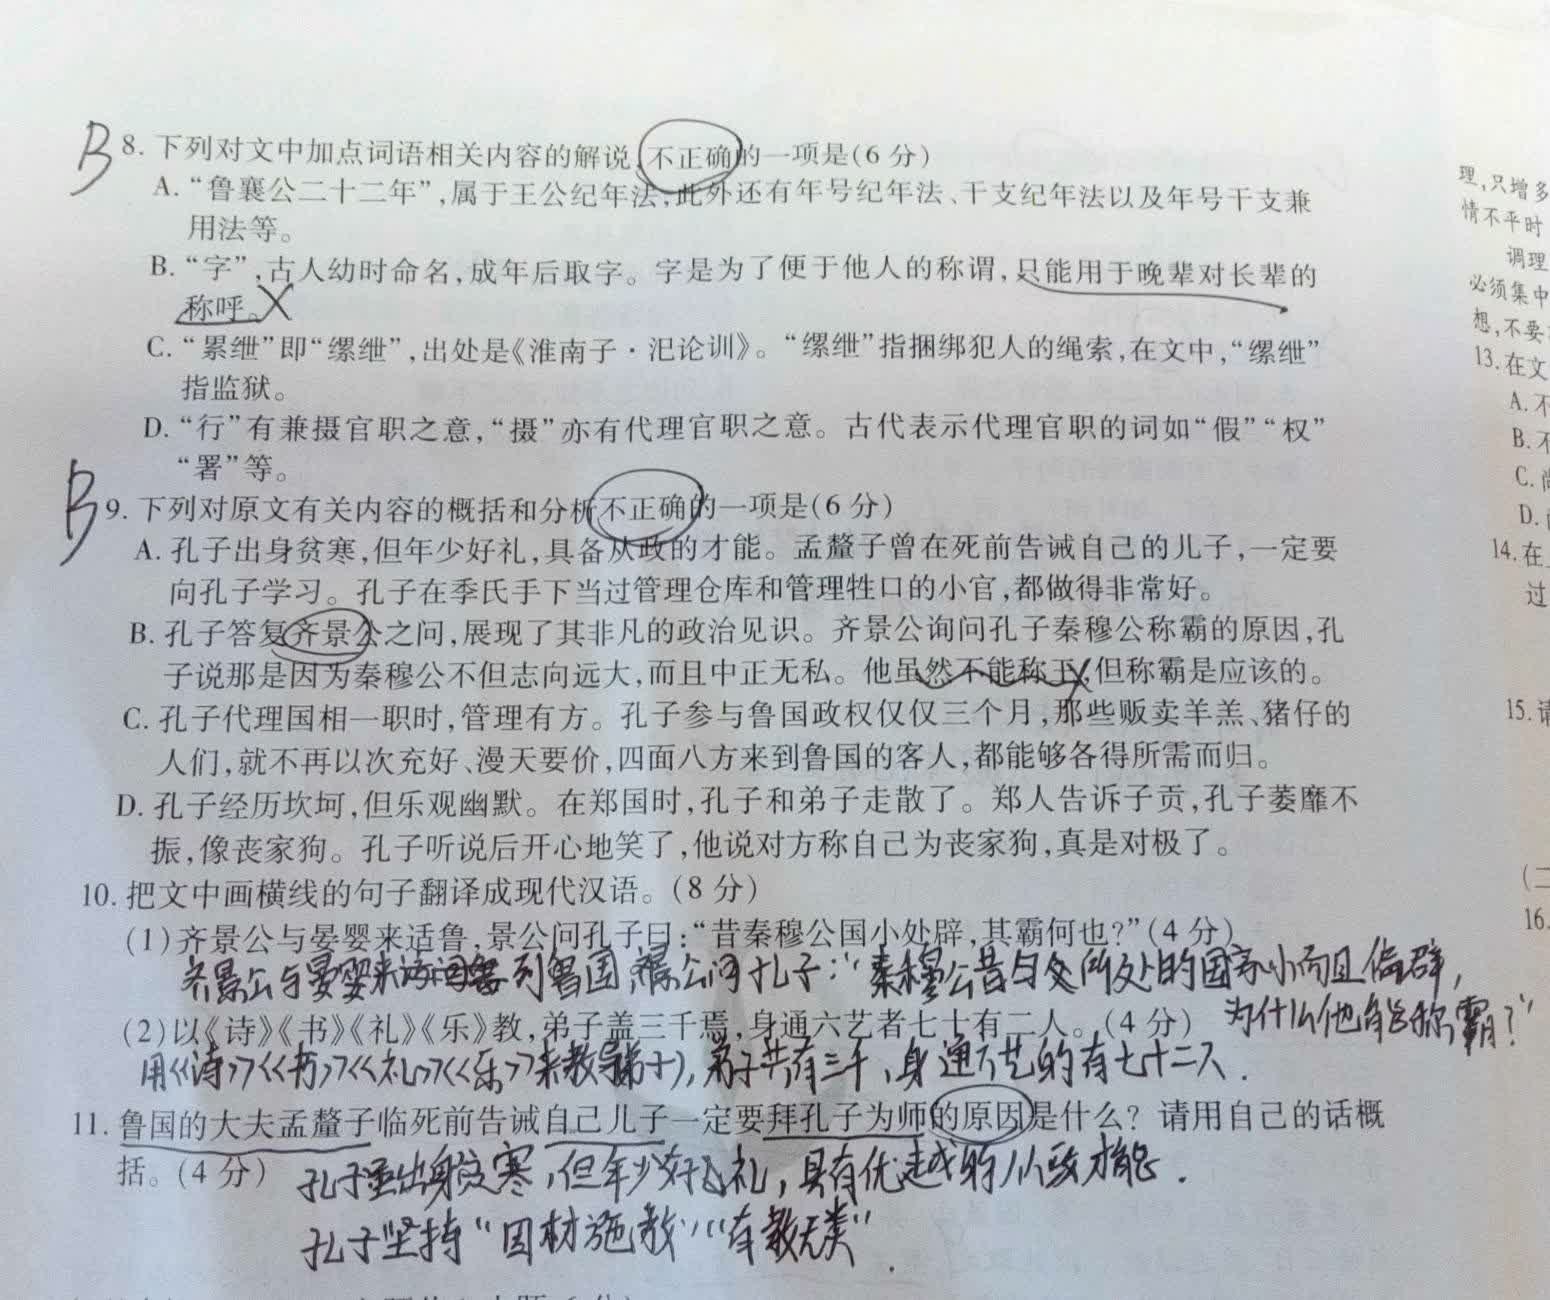 B 8. 下列对文中加点词语相关内容的解说,不正确的一项是(6 分)
A. “鲁襄公二十二年”,属于王公纪年法,此外还有年号纪年法、干支纪年法以及年号干支兼
用法等。
B. “字”,古人幼时命名,成年后取字。字是为了便于他人的称谓,只能用于晚辈对长辈的
称呼。X
C. “累绁”即“缧绁”,出处是《淮南子·汜论训》。“缧绁”指捆绑犯人的绳索,在文中,“缧绁”
指监狱。
D. “行”有兼摄官职之意,“摄”亦有代理官职之意。古代表示代理官职的词如“假”“权”
“署”等。
B 9. 下列对原文有关内容的概括和分析不正确的一项是(6 分)
A. 孔子出身贫寒,但年少好礼,具备从政的才能。孟釐子曾在死前告诫自己的儿子,一定要
向孔子学习。孔子在季氏手下当过管理仓库和管理牲口的小官,都做得非常好。
B. 孔子答复齐景公之问,展现了其非凡的政治见识。齐景公询问孔子秦穆公称霸的原因,孔
子说那是因为秦穆公不但志向远大,而且中正无私。他虽然不能称王,但称霸是应该的。
C. 孔子代理国相一职时,管理有方。孔子参与鲁国政权仅仅三个月,那些贩卖羊羔、猪仔的
人们,就不再以次充好、漫天要价,四面八方来到鲁国的客人,都能够各得所需而归。
D. 孔子经历坎坷,但乐观幽默。在郑国时,孔子和弟子走散了。郑人告诉子贡,孔子萎靡不
振,像丧家狗。孔子听说后开心地笑了,他说对方称自己为丧家狗,真是对极了。
10. 把文中画横线的句子翻译成现代汉语。(8 分)
(1)齐景公与晏婴来适鲁,景公问孔子曰:“昔秦穆公国小处辟,其霸何也?”(4 分)
齐景公与晏婴来到鲁国,景公问孔子:“秦穆公昔所处的国家小而且偏僻,
为什么他能称霸?”
(2)以《诗》《书》《礼》《乐》教,弟子盖三千焉,身通六艺者七十有二人。(4 分)
用《诗》《书》《礼》《乐》来教导弟子,弟子共有三千,身通六艺的有七十二人.
11. 鲁国的大夫孟釐子临死前告诫自己儿子一定要拜孔子为师的原因是什么?请用自己的话概
括。(4 分)
孔子出身贫寒,但年少好礼,具有优越的从政才能.
孔子坚持“因材施教”“有教无类”.
理,只增多
情不平时
调理
必须集中
想,不要
13. 在文
A. 不
B. 不
C. 尚
D.
14. 在
过
15. 请
(二
16.